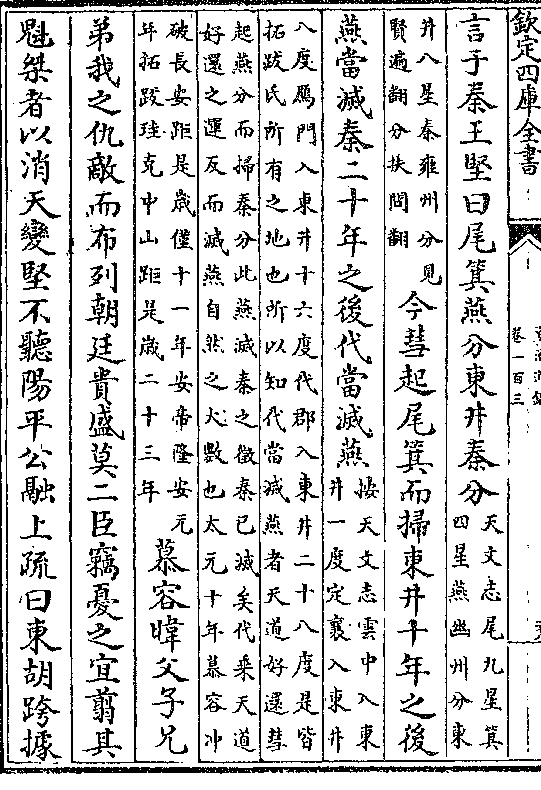 欽定四庫全書
資治通鑑
卷一百三
言于秦王堅曰尾箕燕分東井秦分
天文志尾九星箕
四星燕幽州分東
井八星秦雍州分見
賢遍翻分扶問翻
今彗起尾箕而掃東井十年之後
燕當滅秦二十年之後代當滅燕
按天文志雲中入東
井一度定襄入東井
八度鴈門入東井十六度代郡入東井二十八度是皆
拓跋氏所有之地也所以知代當滅燕者天道好還彗
起燕分而掃秦分此燕滅秦之徵秦已滅矣代乘天道
好還之運反而滅燕自然之大數也太元十年慕容冲
破長安距是歲僅十一年安帝隆安元
年拓跋珪克中山距是歲二十三年
慕容暐父子兄
弟我之仇敵而布列朝廷貴盛莫二臣竊憂之宜翦其
魁桀者以消天變堅不聽陽平公融上疏曰東胡跨據